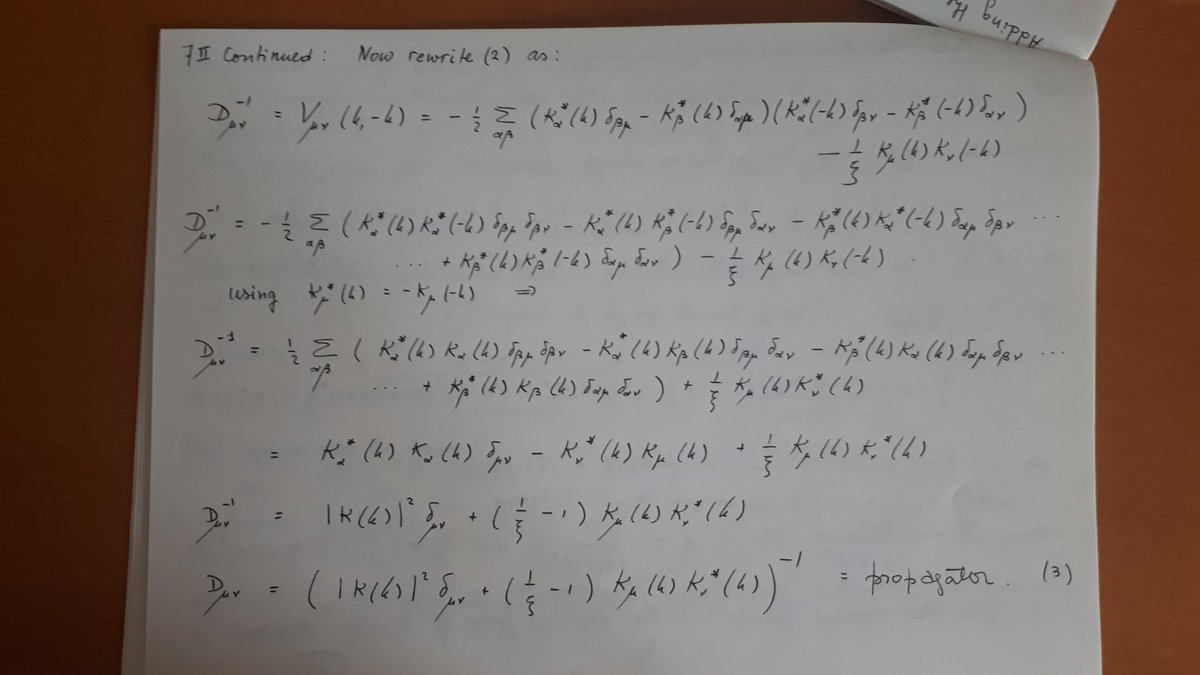 Adding
7 II Continued: Now rewrite (2) as:
D_{μν}^{-1} = V_{μν}(k,-k) = -½ Σ_{αβ} (K_α^*(k) δ_{βμ} - K_β^*(k) δ_{αμ})(K_α^*(-k) δ_{βν} - K_β^*(-k) δ_{αν})
- 1/ξ K_μ(k) K_ν(-k)
D_{μν}^{-1} = -½ Σ_{αβ} (K_α^*(k) K_α^*(-k) δ_{βμ} δ_{βν} - K_α^*(k) K_β^*(-k) δ_{βμ} δ_{αν} - K_β^*(k) K_α^*(-k) δ_{αμ} δ_{βν} ...
... + K_β^*(k) K_β^*(-k) δ_{αμ} δ_{αν}) - 1/ξ K_μ(k) K_ν(-k).
using K_μ^*(k) = -K_μ(-k) ⇒
D_{μν}^{-1} = ½ Σ_{αβ} (K_α^*(k) K_α(k) δ_{βμ} δ_{βν} - K_α^*(k) K_β(k) δ_{βμ} δ_{αν} - K_β^*(k) K_α(k) δ_{αμ} δ_{βν} ...
... + K_β^*(k) K_β(k) δ_{αμ} δ_{αν}) + 1/ξ K_μ(k) K_ν^*(k)
= K_α^*(k) K_α(k) δ_{μν} - K_ν^*(k) K_μ(k) + 1/ξ K_μ(k) K_ν^*(k)
D_{μν}^{-1} = |K(k)|² δ_{μν} + (1/ξ - 1) K_μ(k) K_ν^*(k)
D_{μν} = (|K(k)|² δ_{μν} + (1/ξ - 1) K_μ(k) K_ν^*(k))^{-1} = propagator. (3)